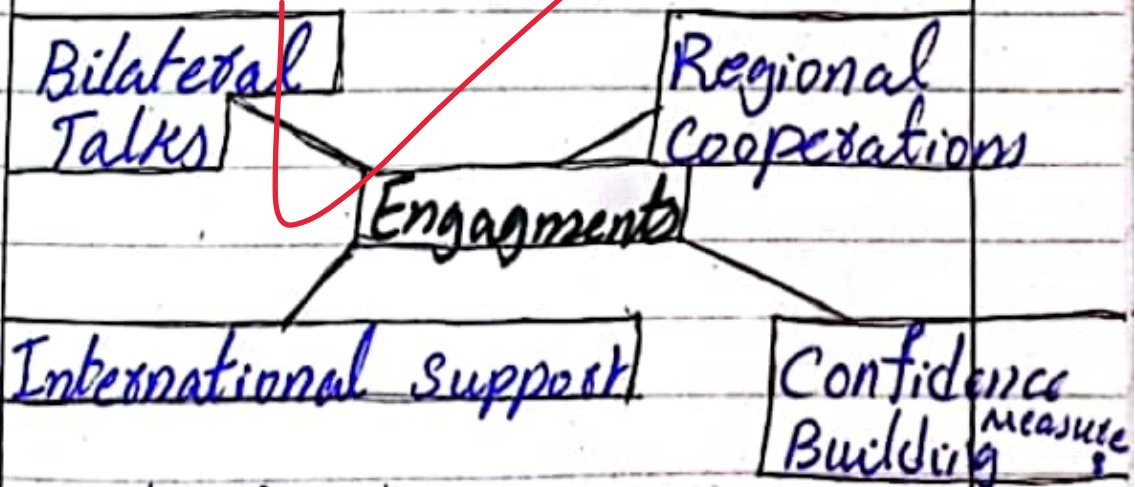 Bilateral
Talks
Regional
Cooperations
Engagments
International support
Confidence
Building Measure